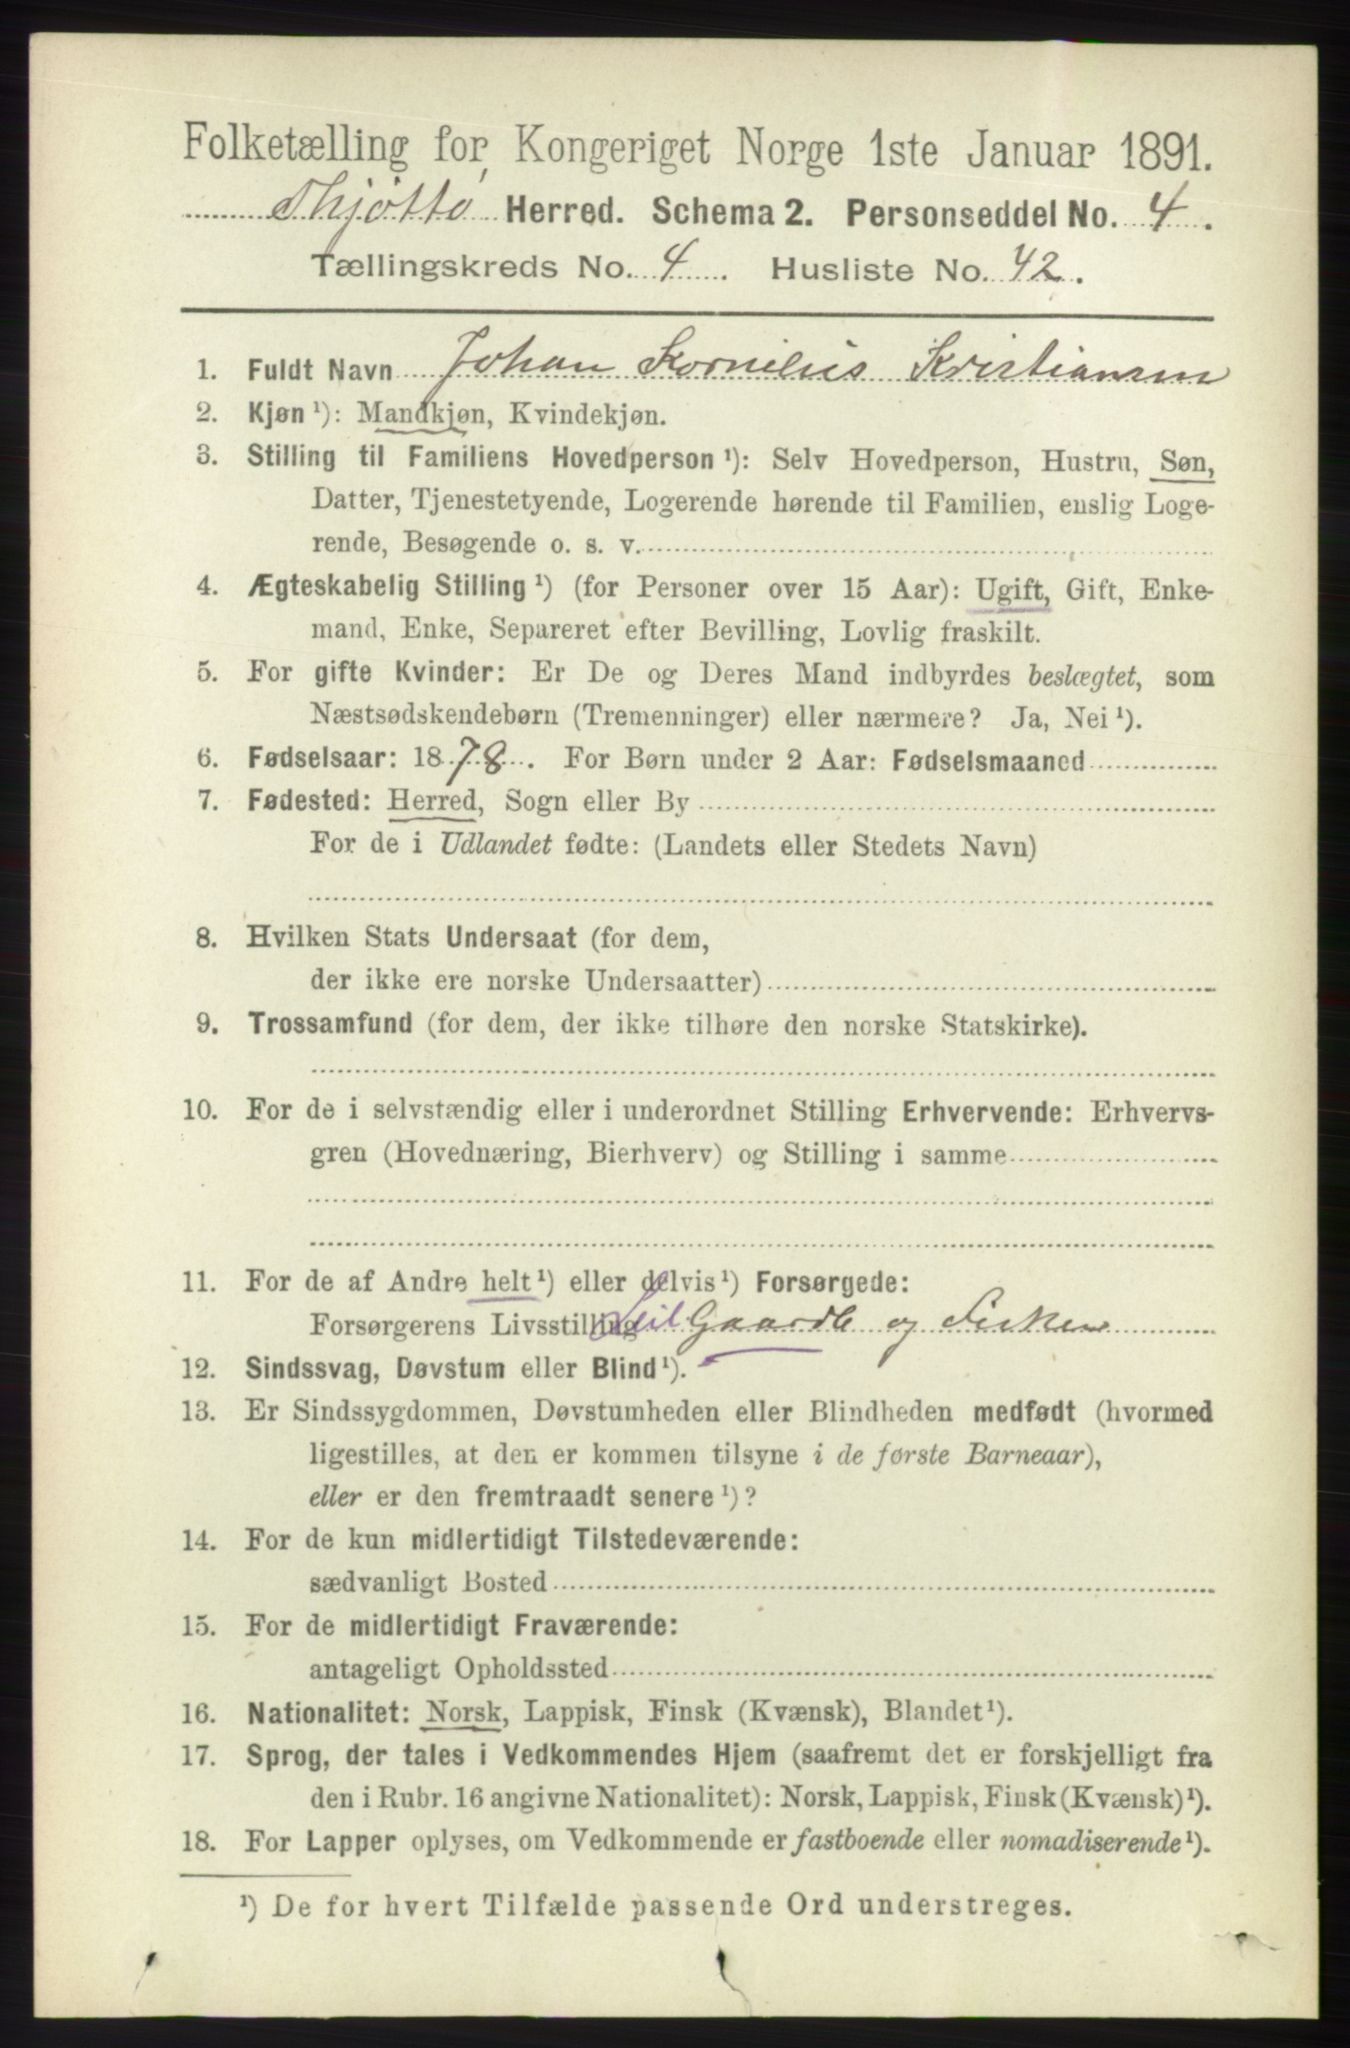 Folketælling for Kongeriget Norge 1ste Januar 1891.
Thjøttø Herred. Schema 2. Personseddel No. 4.
Tællingskreds No. 4. Husliste No. 42.
1. Fuldt Navn Johan Kornelius Kristiansen
2. Kjøn ¹): Mandkjøn, Kvindekjøn.
3. Stilling til Familiens Hovedperson ¹): Selv Hovedperson, Hustru, Søn,
Datter, Tjenestetyende, Logerende hørende til Familien, enslig Loge-
rende, Besøgende o. s. v.
4. Ægteskabelig Stilling ¹) (for Personer over 15 Aar): Ugift, Gift, Enke-
mand, Enke, Separeret efter Bevilling, Lovlig fraskilt.
5. For gifte Kvinder: Er De og Deres Mand indbyrdes beslægtet, som
Næstsødskendebørn (Tremenninger) eller nærmere? Ja, Nei ¹).
6. Fødselsaar: 1878. For Børn under 2 Aar: Fødselsmaaned
7. Fødested: Herred, Sogn eller By
For de i Udlandet fødte: (Landets eller Stedets Navn)
8. Hvilken Stats Undersaat (for dem,
der ikke ere norske Undersaatter)
9. Trossamfund (for dem, der ikke tilhøre den norske Statskirke).
10. For de i selvstændig eller i underordnet Stilling Erhvervende: Erhvervs-
gren (Hovednæring, Bierhverv) og Stilling i samme
11. For de af Andre helt ¹) eller delvis ¹) Forsørgede:
Forsørgerens Livsstilling Leil Gaardb og Fisker
12. Sindssvag, Døvstum eller Blind ¹).
13. Er Sindssygdommen, Døvstumheden eller Blindheden medfødt (hvormed
ligestilles, at den er kommen tilsyne i de første Barneaar),
eller er den fremtraadt senere ¹)?
14. For de kun midlertidigt Tilstedeværende:
sædvanligt Bosted
15. For de midlertidigt Fraværende:
antageligt Opholdssted
16. Nationalitet: Norsk, Lappisk, Finsk (Kvænsk), Blandet ¹).
17. Sprog, der tales i Vedkommendes Hjem (saafremt det er forskjelligt fra
den i Rubr. 16 angivne Nationalitet): Norsk, Lappisk, Finsk (Kvænsk) ¹).
18. For Lapper oplyses, om Vedkommende er fastboende eller nomadiserende ¹).
¹) De for hvert Tilfælde passende Ord understreges.